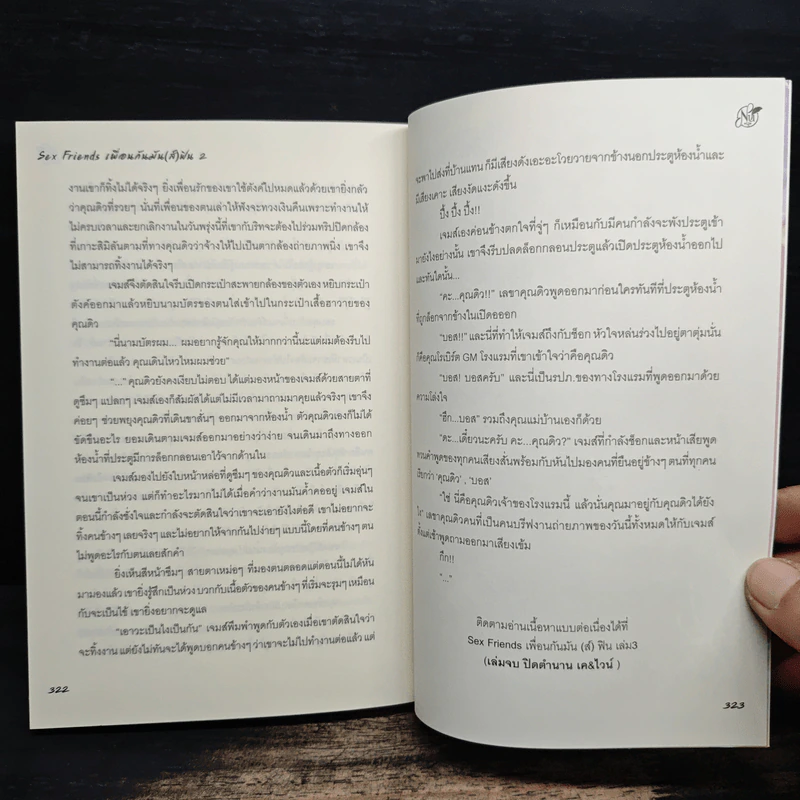 Sex Friends เพื่อนกันมัน(ส์)ฟิน 2
งานเขาก็ทิ้งไม่ได้จริงๆ ยิ่งเพื่อนรักของเขาใช้ตังค์ไปหมดแล้วด้วยเขายิ่งกลัว
ว่าคุณดิวที่รวยๆ นั่นที่เพื่อนของตนเล่าให้ฟังจะทวงเงินคืนเพราะทำงานให้
ไม่ครบเวลาและยกเลิกงานในวันพรุ่งนี้ที่เขากับริทจะต้องไปร่วมทริปปิดกล้อง
ที่เกาะสิมิลันตามที่ทางคุณดิวว่าจ้างให้ไปเป็นตากล้องถ่ายภาพนิ่ง เขาจึง
ไม่สามารถทิ้งงานได้จริงๆ
เจมส์จึงตัดสินใจรีบเปิดกระเป๋าสะพายกล้องของตัวเอง หยิบกระเป๋า
ตังค์ออกมาแล้วหยิบนามบัตรของตนใส่เข้าไปในกระเป๋าเสื้อฮาวายของ
คุณดิว
“นี่นามบัตรผม... ผมอยากรู้จักคุณให้มากกว่านี้นะแต่ผมต้องรีบไป
ทำงานต่อแล้ว คุณเดินไหวไหมผมช่วย”
“...” คุณดิวยังคงเงียบไม่ตอบ ได้แต่มองหน้าของเจมส์ด้วยสายตาที่
ดูซึมๆ แปลกๆ เจมส์เองก็สัมผัสได้แต่ไม่มีเวลามาถามมาคุยแล้วจริงๆ เขาจึง
ค่อยๆ ช่วยพยุงคุณดิวที่เดินขาสั่นๆ ออกมาจากห้องน้ำ ตัวคุณดิวเองก็ไม่ได้
ขัดขืนอะไร ยอมเดินตามเจมส์ออกมาอย่างว่าง่าย จนเดินมาถึงทางออก
ห้องน้ำที่ประตูมีการล็อกกลอนเอาไว้จากด้านใน
เจมส์มองไปยังใบหน้าหล่อที่ดูซึมๆ ของคุณดิวและเนื้อตัวก็เริ่มอุ่นๆ
จนเขาเป็นห่วง แต่ก็ทำอะไรมากไม่ได้เมื่อคำว่างานมันค้ำคออยู่ เจมส์ใน
ตอนนี้กำลังชั่งใจและกำลังจะตัดสินใจว่าเขาจะเอายังไงต่อดี เขาไม่อยากจะ
ทิ้งคนข้างๆ เลยจริงๆ และไม่อยากให้จากกันไปง่ายๆ แบบนี้โดยที่คนข้างๆ ตน
ไม่พูดอะไรกับตนเลยสักคำ
ยิ่งเห็นสีหน้าซึมๆ สายตาเหม่อๆ ที่มองตนตลอดแต่ตอนนี้ไม่ได้หัน
มามองแล้ว เขายิ่งรู้สึกเป็นห่วง บวกกับเนื้อตัวของคนข้างๆ ที่เริ่มจะรุมๆ เหมือน
กับจะเป็นไข้ เขายิ่งอยากจะดูแล
“เอาวะเป็นไงเป็นกัน” เจมส์พึมพำพูดกับตัวเองเมื่อเขาตัดสินใจว่า
จะทิ้งงาน แต่ยังไม่ทันจะได้พูดบอกคนข้างๆ ว่าเขาจะไม่ไปทำงานต่อแล้ว แต่
322
จะพาไปส่งที่บ้านแทน ก็มีเสียงดังเอะอะโวยวายจากข้างนอกประตูห้องน้ำและ
มีเสียงเคาะ เสียงงัดแงะดังขึ้น
ปึ้ง ปึ้ง ปึ้ง!!
เจมส์เองค่อนข้างตกใจที่จู่ๆ ก็เหมือนกับมีคนกำลังจะพังประตูเข้า
มายังไงอย่างนั้น เขาจึงรีบปลดล็อกกลอนประตูแล้วเปิดประตูห้องน้ำออกไป
และทันใดนั้น...
“คะ...คุณดิว!!” เลขาคุณดิวพูดออกมาก่อนใครทันทีที่ประตูห้องน้ำ
ที่ถูกล็อกจากข้างในเปิดอออก
“บอส!!” และนี่ที่ทำให้เจมส์ถึงกับช็อก หัวใจหล่นร่วงไปอยู่ตาตุ่มนั่น
ก็คือคุณโรเบิร์ต GM โรงแรมที่เขาเข้าใจว่าคือคุณดิว
“บอส! บอสครับ” และนี่เป็นรปภ.ของทางโรงแรมที่พูดออกมาด้วย
ความโล่งใจ
“ฮึก...บอส” รวมถึงคุณแม่บ้านเองก็ด้วย
“ดะ...เดี๋ยวนะครับ คะ...คุณดิว?” เจมส์ที่กำลังช็อกและหน้าเสียพูด
ทวนคำพูดของทุกคนเสียงสั่นพร้อมกับหันไปมองคนที่ยืนอยู่ข้างๆ ตนที่ทุกคน
เรียกว่า ‘คุณดิว’ , ‘บอส’
“ใช่ นี่คือคุณดิวเจ้าของโรงแรมนี้ แล้วนั่นคุณมาอยู่กับคุณดิวได้ยัง
ไง” เลขาคุณดิวคนที่เป็นคนบรีฟงานถ่ายภาพของวันนี้ทั้งหมดให้กับเจมส์
ตั้งแต่เช้าพูดถามออกมาเสียงเข้ม
กึก!!
“...”
ติดตามอ่านเนื้อหาแบบต่อเนื่องได้ที่
Sex Friends เพื่อนกันมัน (ส์) ฟิน เล่ม3
(เล่มจบ ปิดตำนาน เค&ไวน์ )
323